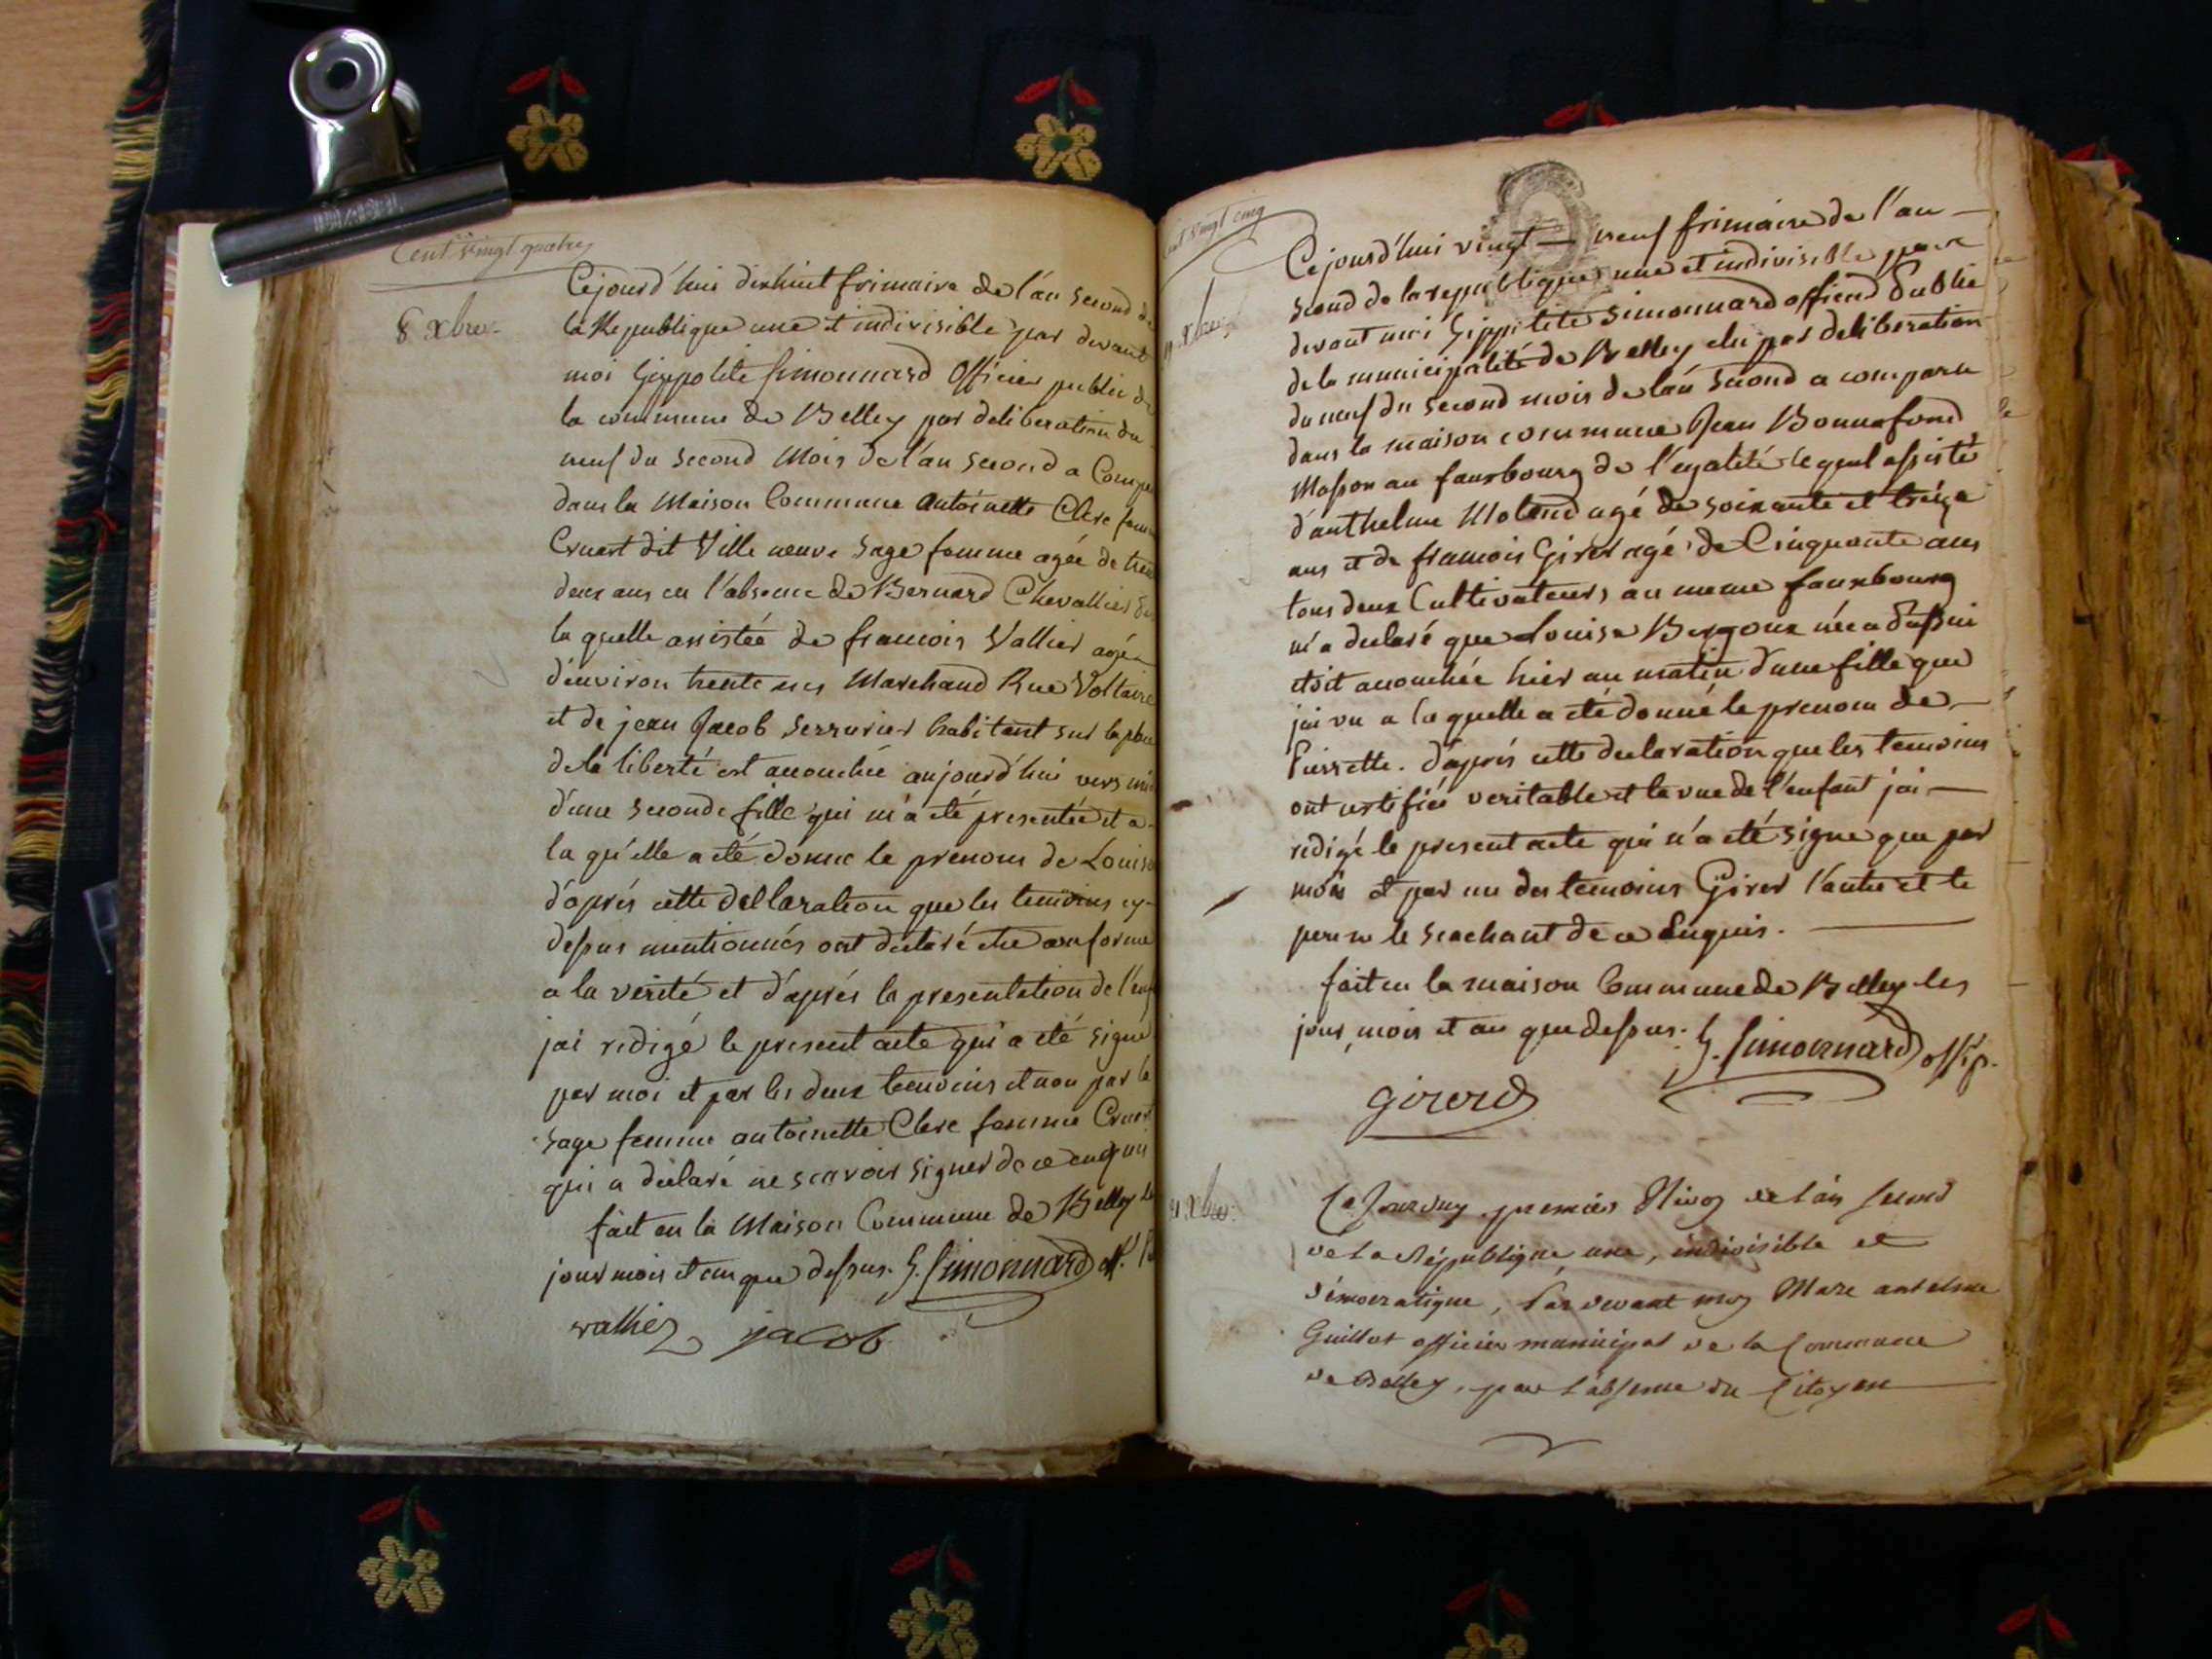 Cent vingt quatre
8 xbre.
Cejourd'hui dixhuit frimaire de l'an second de
la Republique une et indivisible par devant
moi hippolite Simonnard Officier public de
la commune de Belley par deliberation du
neuf du second Mois de l'an second a Compa
dans la Maison Commune antoinette Clerc fem
Cruert dit Ville neuve sage femme agée de tren
deux ans en l'absence de Bernard Chevallier
la quelle assistée de francois Vallier agé
d'environ trente ans Marchand Rue Voltaire
et de jean Jacob Serrurier habitant sur la place
de la liberté est accouchée aujourd'hui vers mi
d'une seconde fille qui m'a eté presentée et a
la qu'elle a eté donné le prenom de Louise
d'aprés cette dellaration que les temoins cy-
dessus mentionnés ont declaré etre conforme
a la verité et d'aprés la presentation de l'enf
jai redigé le present acte qui a eté signé
par moi et par les deux temoins et non par la
sage femme antoinette Clerc femme Cruert
qui a declaré ne scavoir signer de ce enquis
fait en la Maison Commune de Belley les
jour mois et an que dessus. h. Simonnard off. P
vallier jacob
Cent vingt cinq
xbre
Cejourd'hui vingt — neuf frimaire de l'an —
second de la republique une et indivisible par
devant moi hippolite Simonnard officier Public
de la municipalité de Belley elu par deliberation
du neuf du second mois de l'an second a comparu
dans la maison commune Jean Bonnefond
Masson au fauxbourg de l'egalité lequel assisté
d'anthelme Molend agé de soixante et treize
ans et de francois Girer agé de Cinquante ans
tous deux Cultivateurs au meme fauxbourg
m'a declaré que Louise Bergoux
etoit accouchée hier au matin d'une fille que
jai vu a la quelle a eté donné le prenom de —
Pierrette. d'aprés cette declaration que les temoins
ont certifiée veritable et la vue de l'enfant jai —
redigé le present acte qui n'a eté signé que par
moi et par un des temoins Girer l'autre et le
pere ne le scachant de ce Enquis. —
fait en la maison Commune de Belley les
jour, mois et an que dessus. h. Simonnard off. p.
girerd
xbre.
Ce Jourduy premier Nivos de l'an second
de la République, une, indivisible et
démocratique, Par devant moy Marc antelme
Guillot officier municipal de la Commune
de Belley, par l'absence du Citoyen —